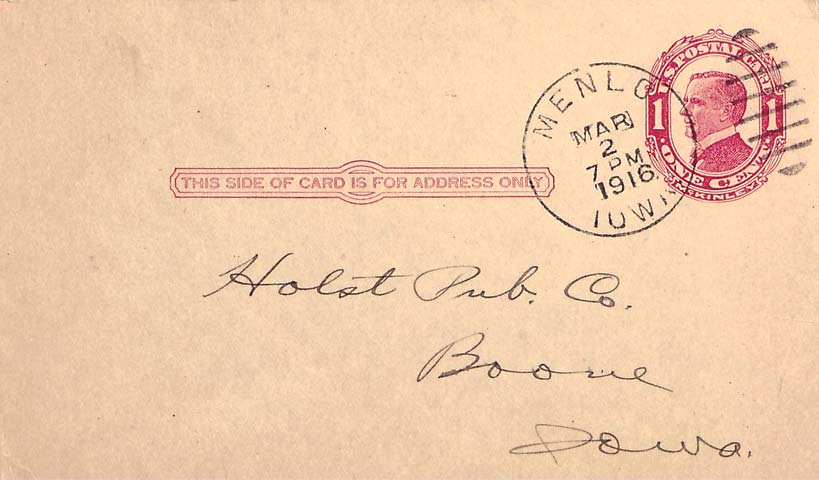 U.S. POSTAL CARD
1 1
ONE CENT
McKINLEY
MENLO
MAR
2
7 PM
1916
IOWA
THIS SIDE OF CARD IS FOR ADDRESS ONLY
Holst Pub. Co.
Boone
Iowa.